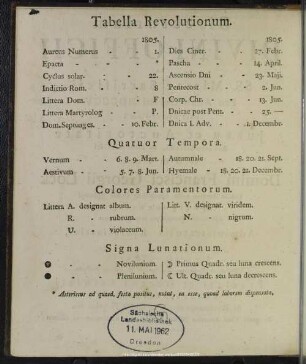 Tabella Revolutionum.
1805. 1805.
Aureus Numerus - 1. Dies Ciner. - 27. Febr.
Epacta - * Pascha - 14. April.
Cyclus solar. - 22. Ascensio Dni - 23. Maji.
Indictio Rom. - 8 Pentecost - 2. Jun.
Littera Dom. - F Corp. Chr. - 13. Jun.
Littera Martyrolog - P. Dnicae post Pent. - 25. —
Dom. Septuages. - 10. Febr. Dnica I. Adv. - 1. Decembr.
Quatuor Tempora.
Vernum - 6. 8. 9. Mart. Autumnale - 18. 20. 21. Sept.
Aestivum - 5. 7. 8. Jun. Hyemale - 18. 20. 21. Decembr.
Colores Paramentorum.
Littera A. designat album. Lit. V. designat viridem.
R. - rubrum. N. - nigrum.
U. - violaceum.
Signa Lunationum.
Novilunium. ☽ Primus Quadr. seu luna crescens.
Plenilunium. ☾ Ult. Quadr. seu luna decrescens.
* Asteriscus ad quaed. festa positus, monet, ea esse, quoad laborem dispensata.
Sächsische
Landesbibliothek
11. MAI 1962
Dresden